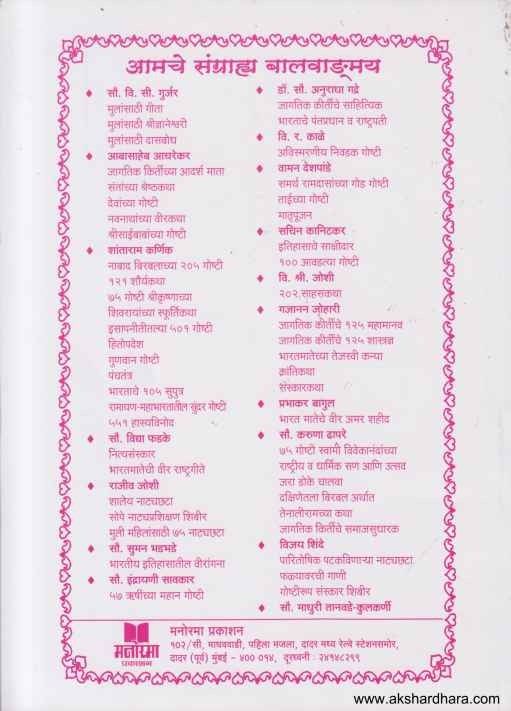 आमचे संग्राह्य बालवाङ्मय
♦ सौ. वि. सी. गुर्जर
मुलांसाठी गीता
मुलांसाठी श्रीज्ञानेश्वरी
मुलांसाठी दासबोध
♦ आबासाहेब आचरेकर
जागतिक किर्तीच्या आदर्श माता
संतांच्या श्रेष्ठकथा
देवांच्या गोष्टी
नवनाथांच्या वीरकथा
श्रीसाईबाबांच्या गोष्टी
♦ शांताराम कर्णिक
नाबाद बिरबलाच्या २०५ गोष्टी
१२१ शौर्यकथा
७५ गोष्टी श्रीकृष्णाच्या
शिवरायांच्या स्फूर्तिकथा
इसापनीतीतल्या ५०१ गोष्टी
हितोपदेश
गुणवान गोष्टी
पंचतंत्र
भारताचे १०५ सुपुत्र
रामायण-महाभारतातील सुंदर गोष्टी
५५१ हास्यविनोद
♦ सौ. विद्या फडके
नित्यसंस्कार
भारतमातेची वीर राष्ट्रगीते
♦ राजीव जोशी
शालेय नाट्यछटा
सोपे नाट्यप्रशिक्षण शिबीर
मुली महिलांसाठी ७५ नाट्यछटा
♦ सौ. सुमन भडभडे
भारतीय इतिहासातील वीरांगना
♦ सौ. इंद्रायणी सावकार
५७ ऋषींच्या महान गोष्टी
♦ डॉ. सौ. अनुराधा गद्रे
जागतिक कीर्तीचे साहित्यिक
भारताचे पंतप्रधान व राष्ट्रपती
♦ वि. र. काळे
अविस्मरणीय निवडक गोष्टी
♦ वामन देशपांडे
समर्थ रामदासांच्या गोड गोष्टी
ताईच्या गोष्टी
मातृपूजन
♦ सचिन कानिटकर
इतिहासाचे साक्षीदार
१०० आवडत्या गोष्टी
♦ वि. श्री. जोशी
२०२ साहसकथा
♦ गजानन जोहारी
जागतिक कीर्तीचे १२५ महामानव
जागतिक कीर्तीचे १२५ शास्त्रज्ञ
भारतमातेच्या तेजस्वी कन्या
क्रांतिकथा
संस्कारकथा
♦ प्रभाकर बागुल
भारत मातेचे वीर अमर शहीद
♦ सौ. करुणा ढापरे
७५ गोष्टी स्वामी विवेकानंदांच्या
राष्ट्रीय व धार्मिक सण आणि उत्सव
जरा डोके चालवा
दक्षिणेतला बिरबल अर्थात
तेनालीरामच्या कथा
जागतिक किर्तीचे समाजसुधारक
♦ विजय शिंदे
पारितोषिक पटकविणाऱ्या नाट्यछटा
फळ्यावरची गाणी
गोष्टीरूप संस्कार शिबीर
♦ सौ. माधुरी तानवडे-कुलकर्णी
मनोरमा
प्रकाशन
मनोरमा प्रकाशन
१०२/सी, माधववाडी, पहिला मजला, दादर मध्य रेल्वे स्टेशनसमोर,
दादर (पूर्व) मुंबई - ४०० ०१४, दूरध्वनी : २४१४८२९९
www.akshardhara.com